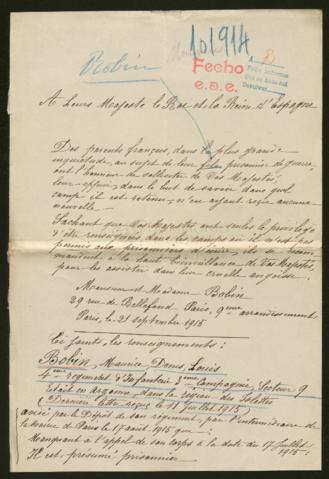 101914
Robin
Fecho
e.a.e.
A Leurs Majesté le Roi et la Reine d'Espagne
Des parents français, dans la plus grande
inquiétude au sujet de leur fils prisonnier de guerre,
ont l'honneur de solliciter de Vos Majestés,
leur appui, dans le but de savoir dans quel
camp il est retenu, n'en ayant reçu aucune
nouvelle.
Sachant que Vos Majestés, ont seules le privilège
d'être renseignées dans les camps où il n'est pas
permis aux prisonniers d'écrire, ils se recom
mandent à la haute bienveillance de Vos Majestés,
pour les assister dans leur cruelle angoisse.
Monsieur et Madame Bobin
29 rue de Bellefond, Paris, 9me arrondissement
Paris, le 21 septembre 1915
Ci joints, les renseignements:
Bobin, Maurice, Denis, Louis
4me régiment d'Infanterie 3me Compagnie, Secteur 9
était en Argonne, dans la région des Islettes
(Dernière lettre reçue le 11 Juillet 1915)
avisé par le Dépôt de son régiment, par l'intermédiaire de
la mairie de Paris le 17 août 1915 que:
Manquant à l'appel de son corps à la date du 17 Juillet
1915.
Il est présumé prisonnier.